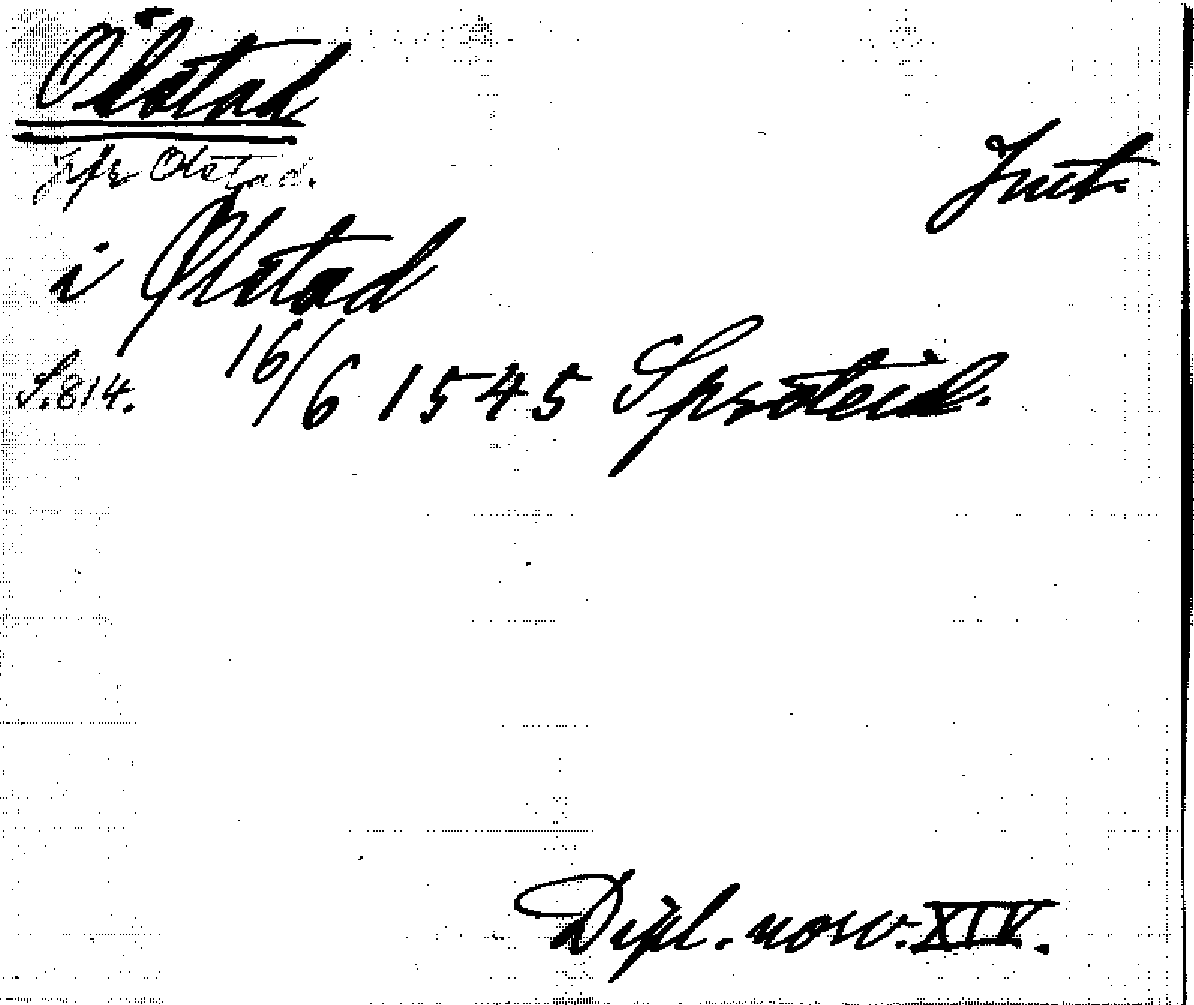 Ölstad
Jfr Olstad.
i Ølstad
S. 814. 16/6 1545 Spröteid.
Dipl. norv. XIV.